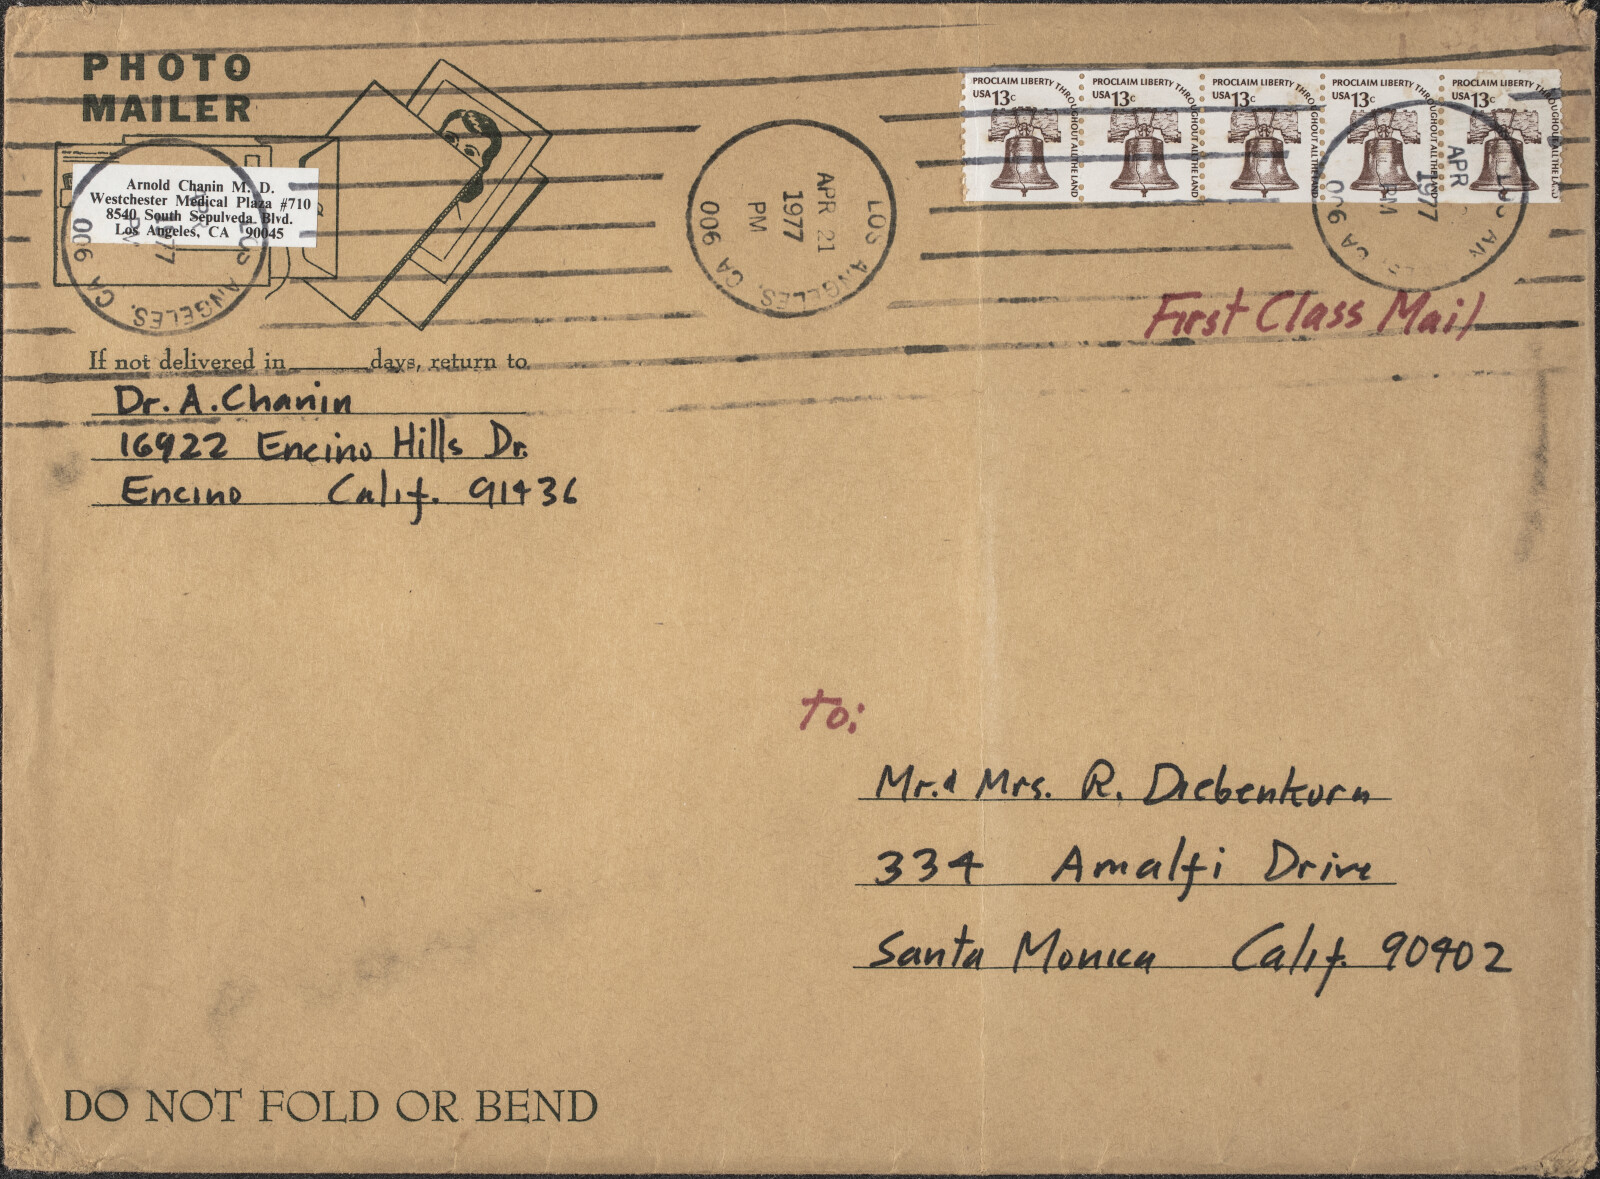 PHOTO
MAILER
Arnold Chanin M. D.
Westchester Medical Plaza #710
8540 South Sepulveda Blvd.
Los Angeles, CA 90045
LOS ANGELES, CA 900
1977
PM
LOS ANGELES, CA 900
APR 21
1977
PM
PROCLAIM LIBERTY THROUGHOUT ALL THE LAND
USA 13c
PROCLAIM LIBERTY THROUGHOUT ALL THE LAND
USA 13c
PROCLAIM LIBERTY THROUGHOUT ALL THE LAND
USA 13c
PROCLAIM LIBERTY THROUGHOUT ALL THE LAND
USA 13c
PROCLAIM LIBERTY THROUGHOUT ALL THE LAND
USA 13c
APR
1977
PM
CA 900
First Class Mail
If not delivered in ______ days, return to
Dr. A. Chanin
16922 Encino Hills Dr.
Encino Calif. 91436
To:
Mr. & Mrs. R. Diebenkorn
334 Amalfi Drive
Santa Monica Calif. 90402
DO NOT FOLD OR BEND